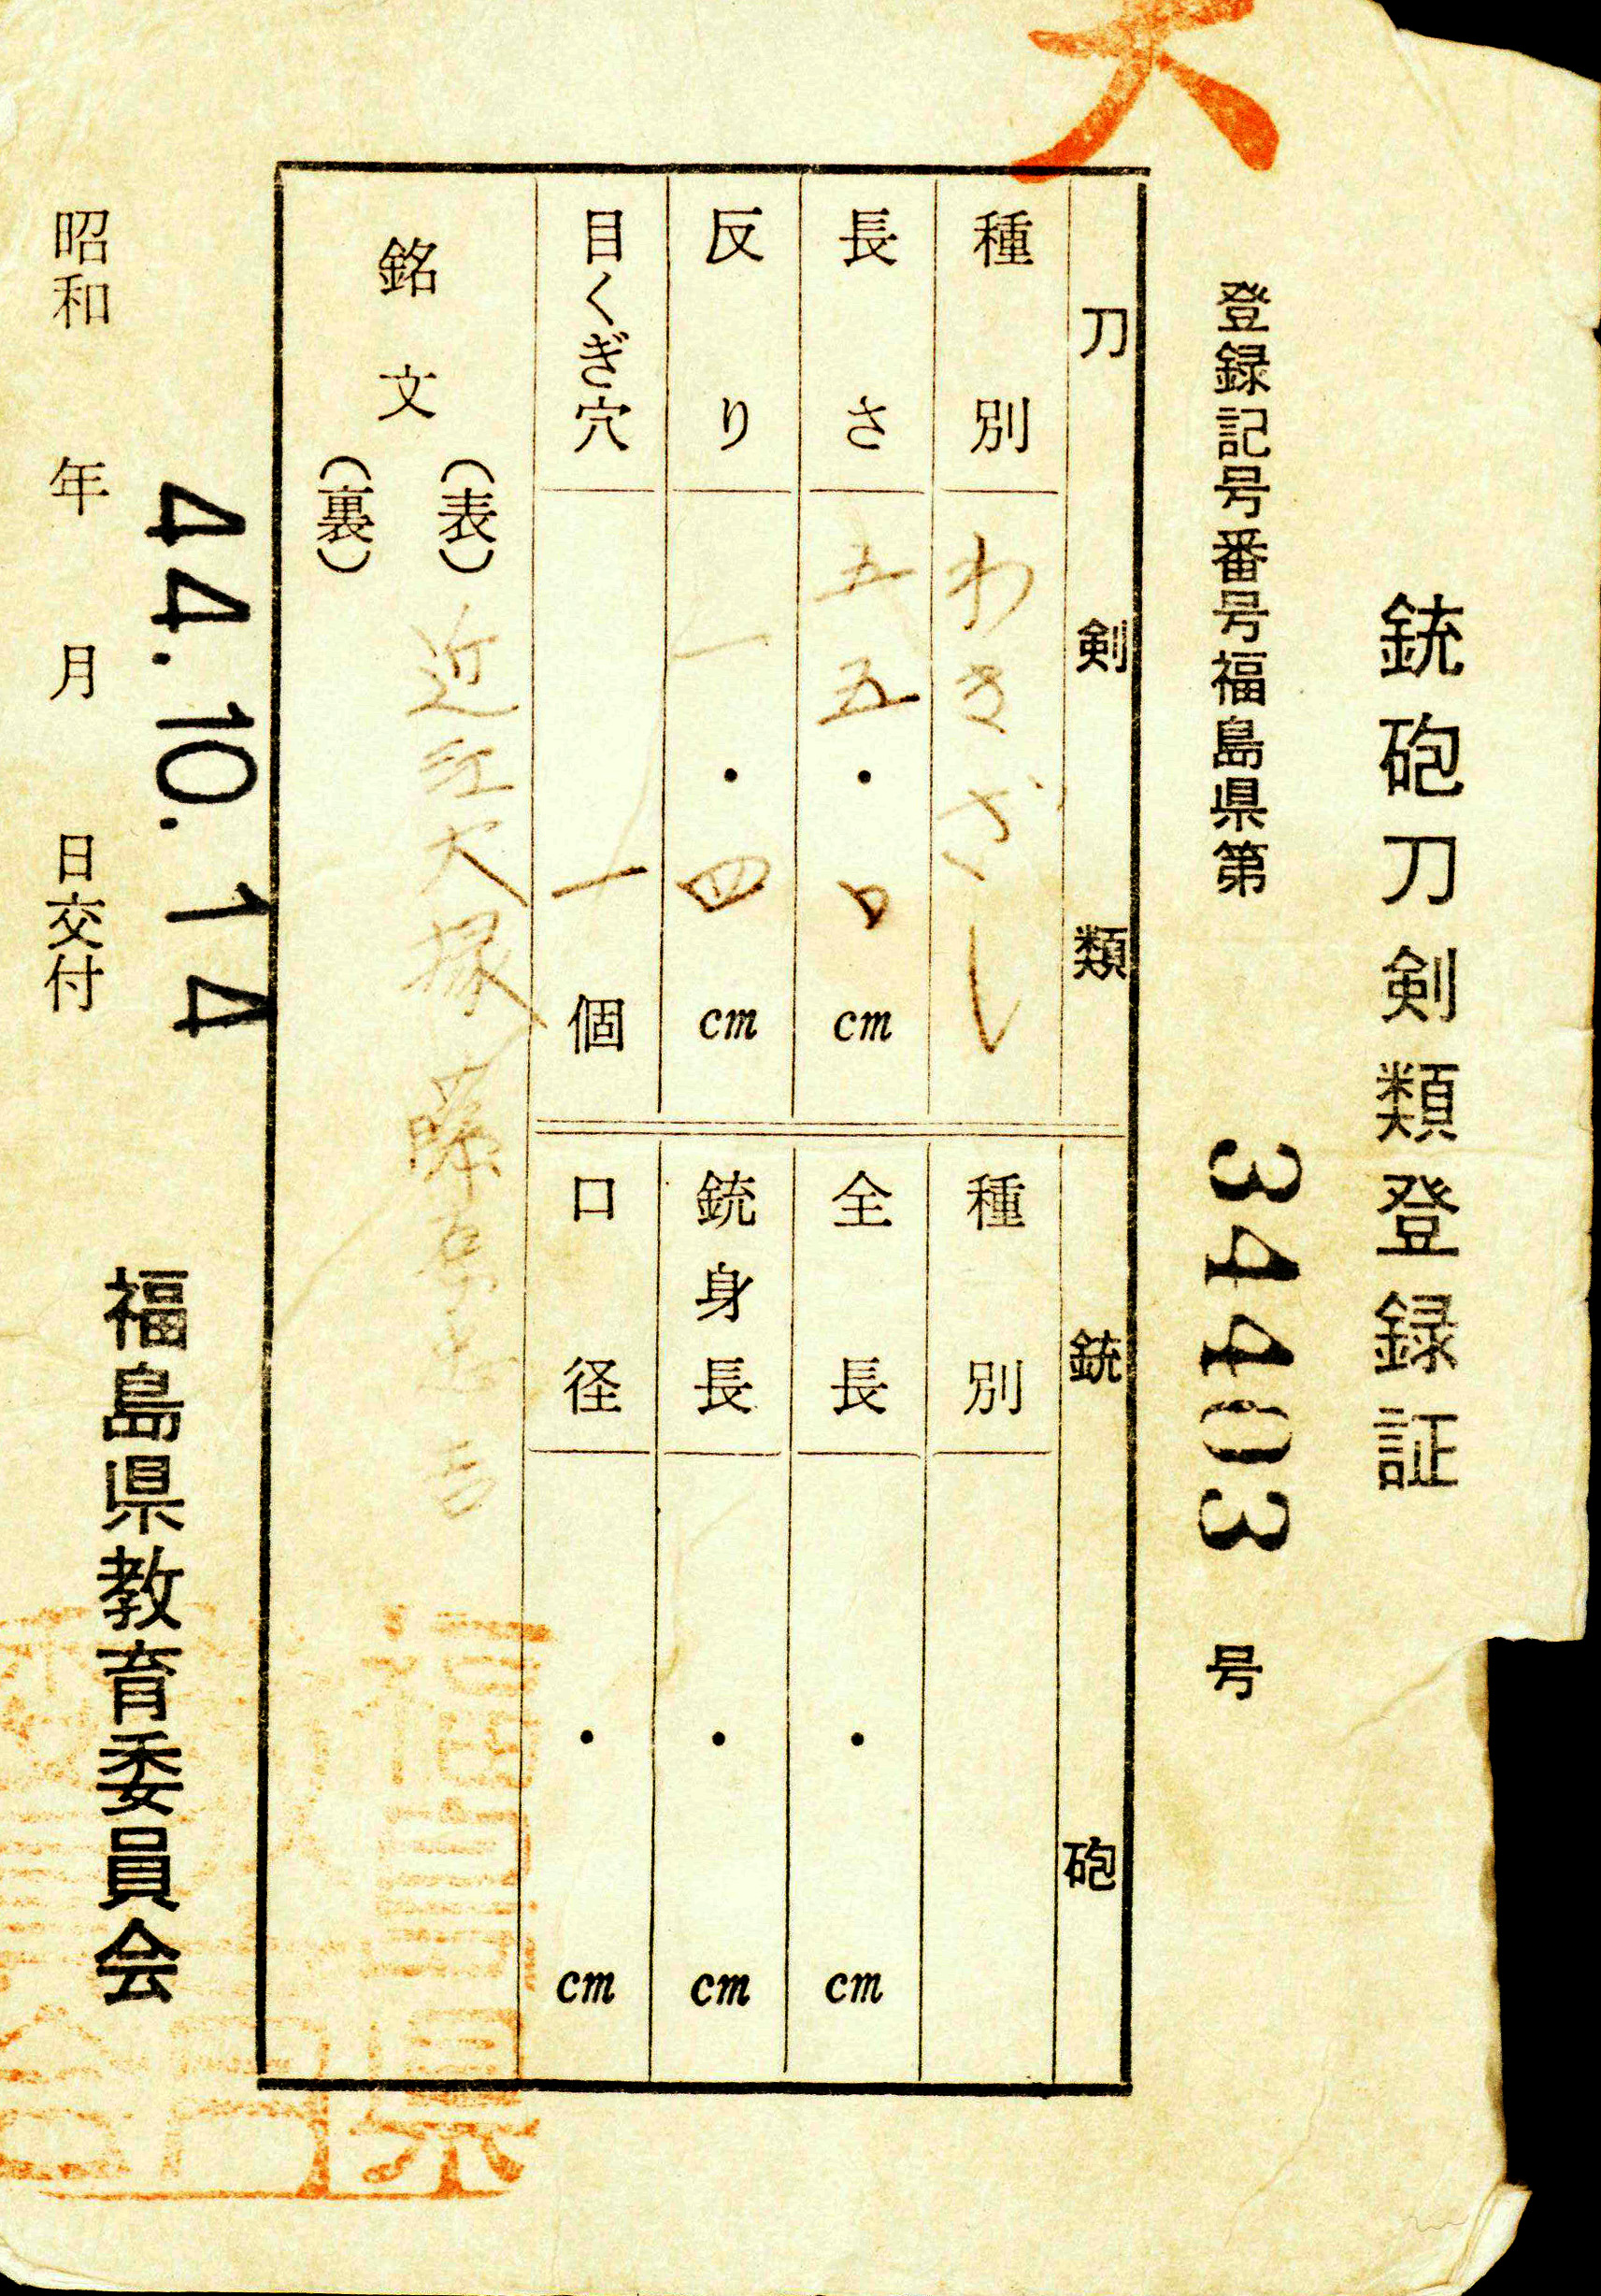 銃砲刀剣類登録証
登録記号番号福島県第 34403 号
刀剣類
種別 わきざし
長さ 五五・〇 cm
反り 一・四 cm
目くぎ穴 一 個
銃砲
種別
全長 ・ cm
銃身長 ・ cm
口径 ・ cm
銘文
(表) 近江大掾藤原忠吉
(裏)
44.10.14
昭和 年 月 日交付
福島県教育委員会